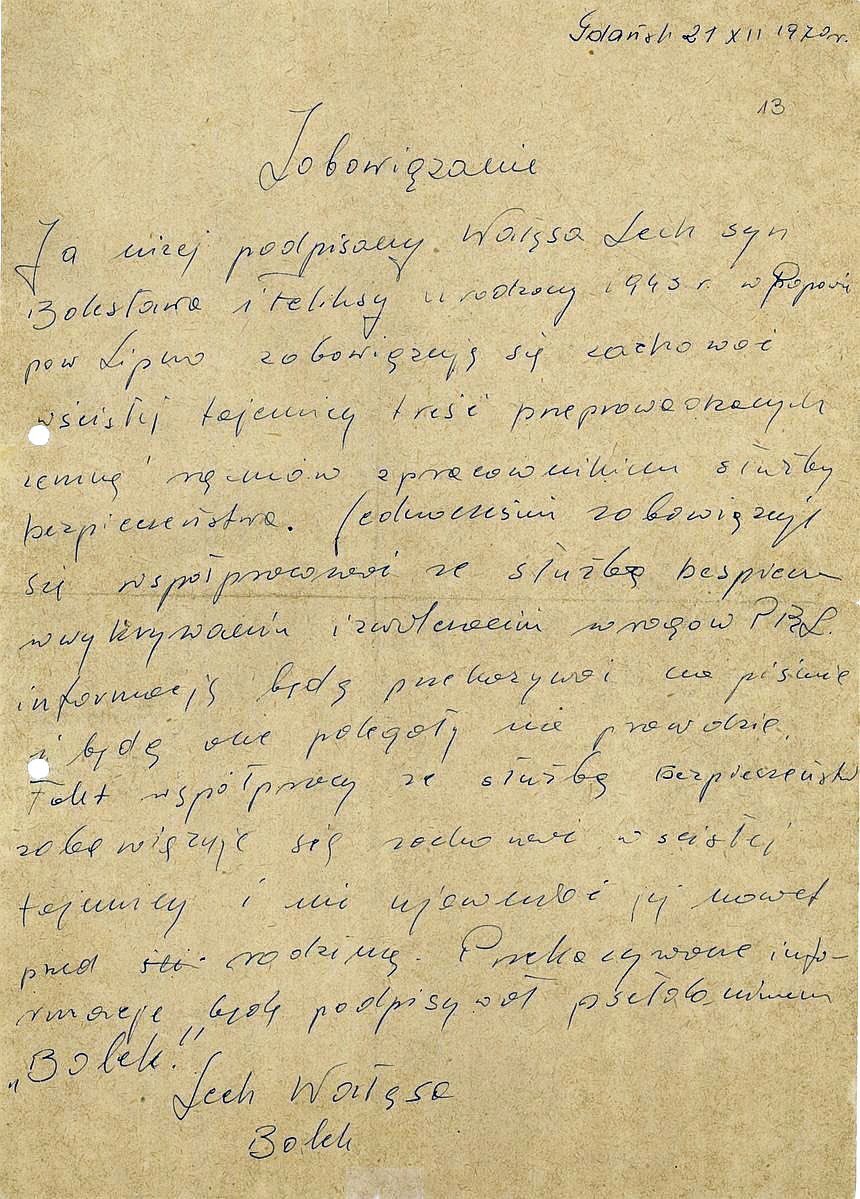 Gdańsk 21 XII 1970r.
13
Zobowiązanie
Ja niżej podpisany Wałęsa Lech syn
Bolesława i Feliksy urodzony 1943 r. w Popowie
pow Lipno zobowiązują się zachować
wścisłej tajemnicy treść przeprowadzanych
zemną rązmów zpracownikiem służby
bezpieczeństwa. Jednocześni zobowiązuję
się współpracować ze służbą bespiecz
wwykrywaniu izwalczaniu wrogów PRL.
informację będą przekazywać na piśmie
i będą one polegały nie prawdzie,
Fakt współpracy ze służbą bezpieczeństw
zobowiązuje się zachować wścisłej
tajemnicy i nie ujawniać jej nawet
przed rodziną. Przekazywane info-
rmacje będę podpisywał psełdonimem
„Bolek."
Lech Wałęsa
Bolek